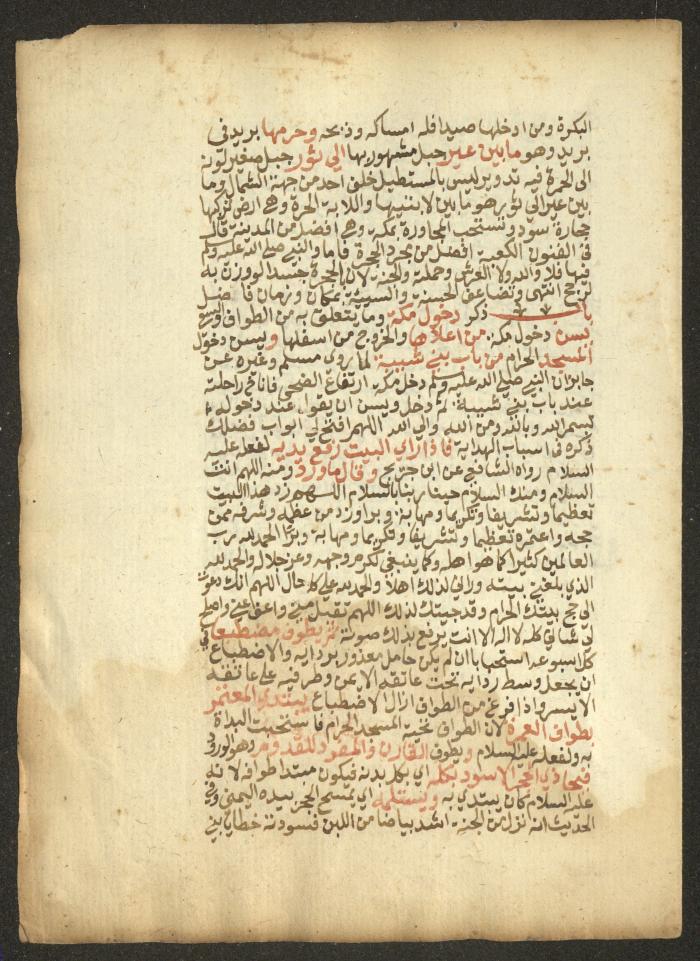 البكرة ومن ادخلها صيدا فله امساكه وذبحه وحرمها بريد في
بريد وهو ما بين عير جبل مشهور بها الى ثور جبل صغير لونه
الى الحمرة فيه تدوير ليس بالمستطيل خلف احد من جهة الشمال وما
بين عير الى ثور هو ما بين لابتيها واللابة الحرة وهي ارض تركبها
حجارة سود وتستحب المجاورة بمكة وهي افضل من المدينة قال
في الفنون الكعبة افضل من مجرد الحجرة فاما والنبي صلى الله عليه وسلم
فيها فلا والله ولا العرش وحملته والجنة لان بالحجرة جسدا لو وزن به
لرجح انتهى وتضاعف الحسنة والسيئة بمكان وزمان فاضل
باب ذكر دخول مكة وما يتعلق به من الطواف والسعي
يسن دخول مكة من اعلاها والخروج من اسفلها ويسن دخول
المسجد الحرام من باب بني شيبة لما روى مسلم وغيره عن
جابر ان النبي صلى الله عليه وسلم دخل مكة ارتفاع الضحى فاناخ راحلته
عند باب بني شيبة ثم دخل ويسن ان يقول عند دخوله
بسم الله وبالله ومن الله والى الله اللهم افتح لي ابواب فضلك
ذكره في اسباب الهداية فاذا راى البيت رفع يديه لفعله عليه
السلام رواه الشافعي عن ابن جريج وقال ما ورد ومنه اللهم انت
السلام ومنك السلام حينا ربنا بالسلام اللهم زد هذا البيت
تعظيما وتشريفا وتكريما ومهابة وبرا وزد من عظمه وشرفه ممن
حجه واعتمره تعظيما وتشريفا وتكريما ومهابة وبرا الحمد لله رب
العالمين كثيرا كما هو اهله وكما ينبغي لكرم وجهه وعز جلاله والحمد لله
الذي بلغني بيته وراني لذلك اهلا والحمد لله على كل حال اللهم انك دعوت
الى حج بيتك الحرام وقد جيتك لذلك اللهم تقبل مني واعف عني واصلح
لي شاني كله لا اله الا انت يرفع بذلك صوته ثم يطوف مضطبعا في
كل اسبوعه استحبابا ان لم يكن حامل معذور بردايه والاضطباع
ان يجعل وسط ردايه تحت عاتقه الايمن وطرفيه على عاتقه
الايسر واذا فرغ من الطواف ازال الاضطباع يبتدي المعتمر
بطواف العمرة لان الطواف تحية المسجد الحرام فاستحبت البداة
به ولفعله عليه السلام ويطوف القارن والمفرد للقدوم وهو الورود
فيحاذي الحجر الاسود بكله اي بكل بدنه فيكون مبتدا طوافه لانه
عليه السلام كان يبتدي به ويستلمه اي يمسح الحجر بيده اليمنى وفي
الحديث انه نزل من الجنة اشد بياضا من اللبن فسودته خطايا بني